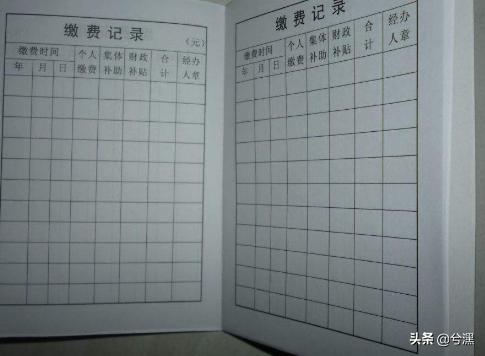 缴费记录
(元)
缴费时间 个人 集体 财政 合 经办
年 月 日 缴费 补助 补贴 计 人章
缴费记录
缴费时间 个人 集体 财政 合 经办
年 月 日 缴费 补助 补贴 计 人章
头条 @兮漯